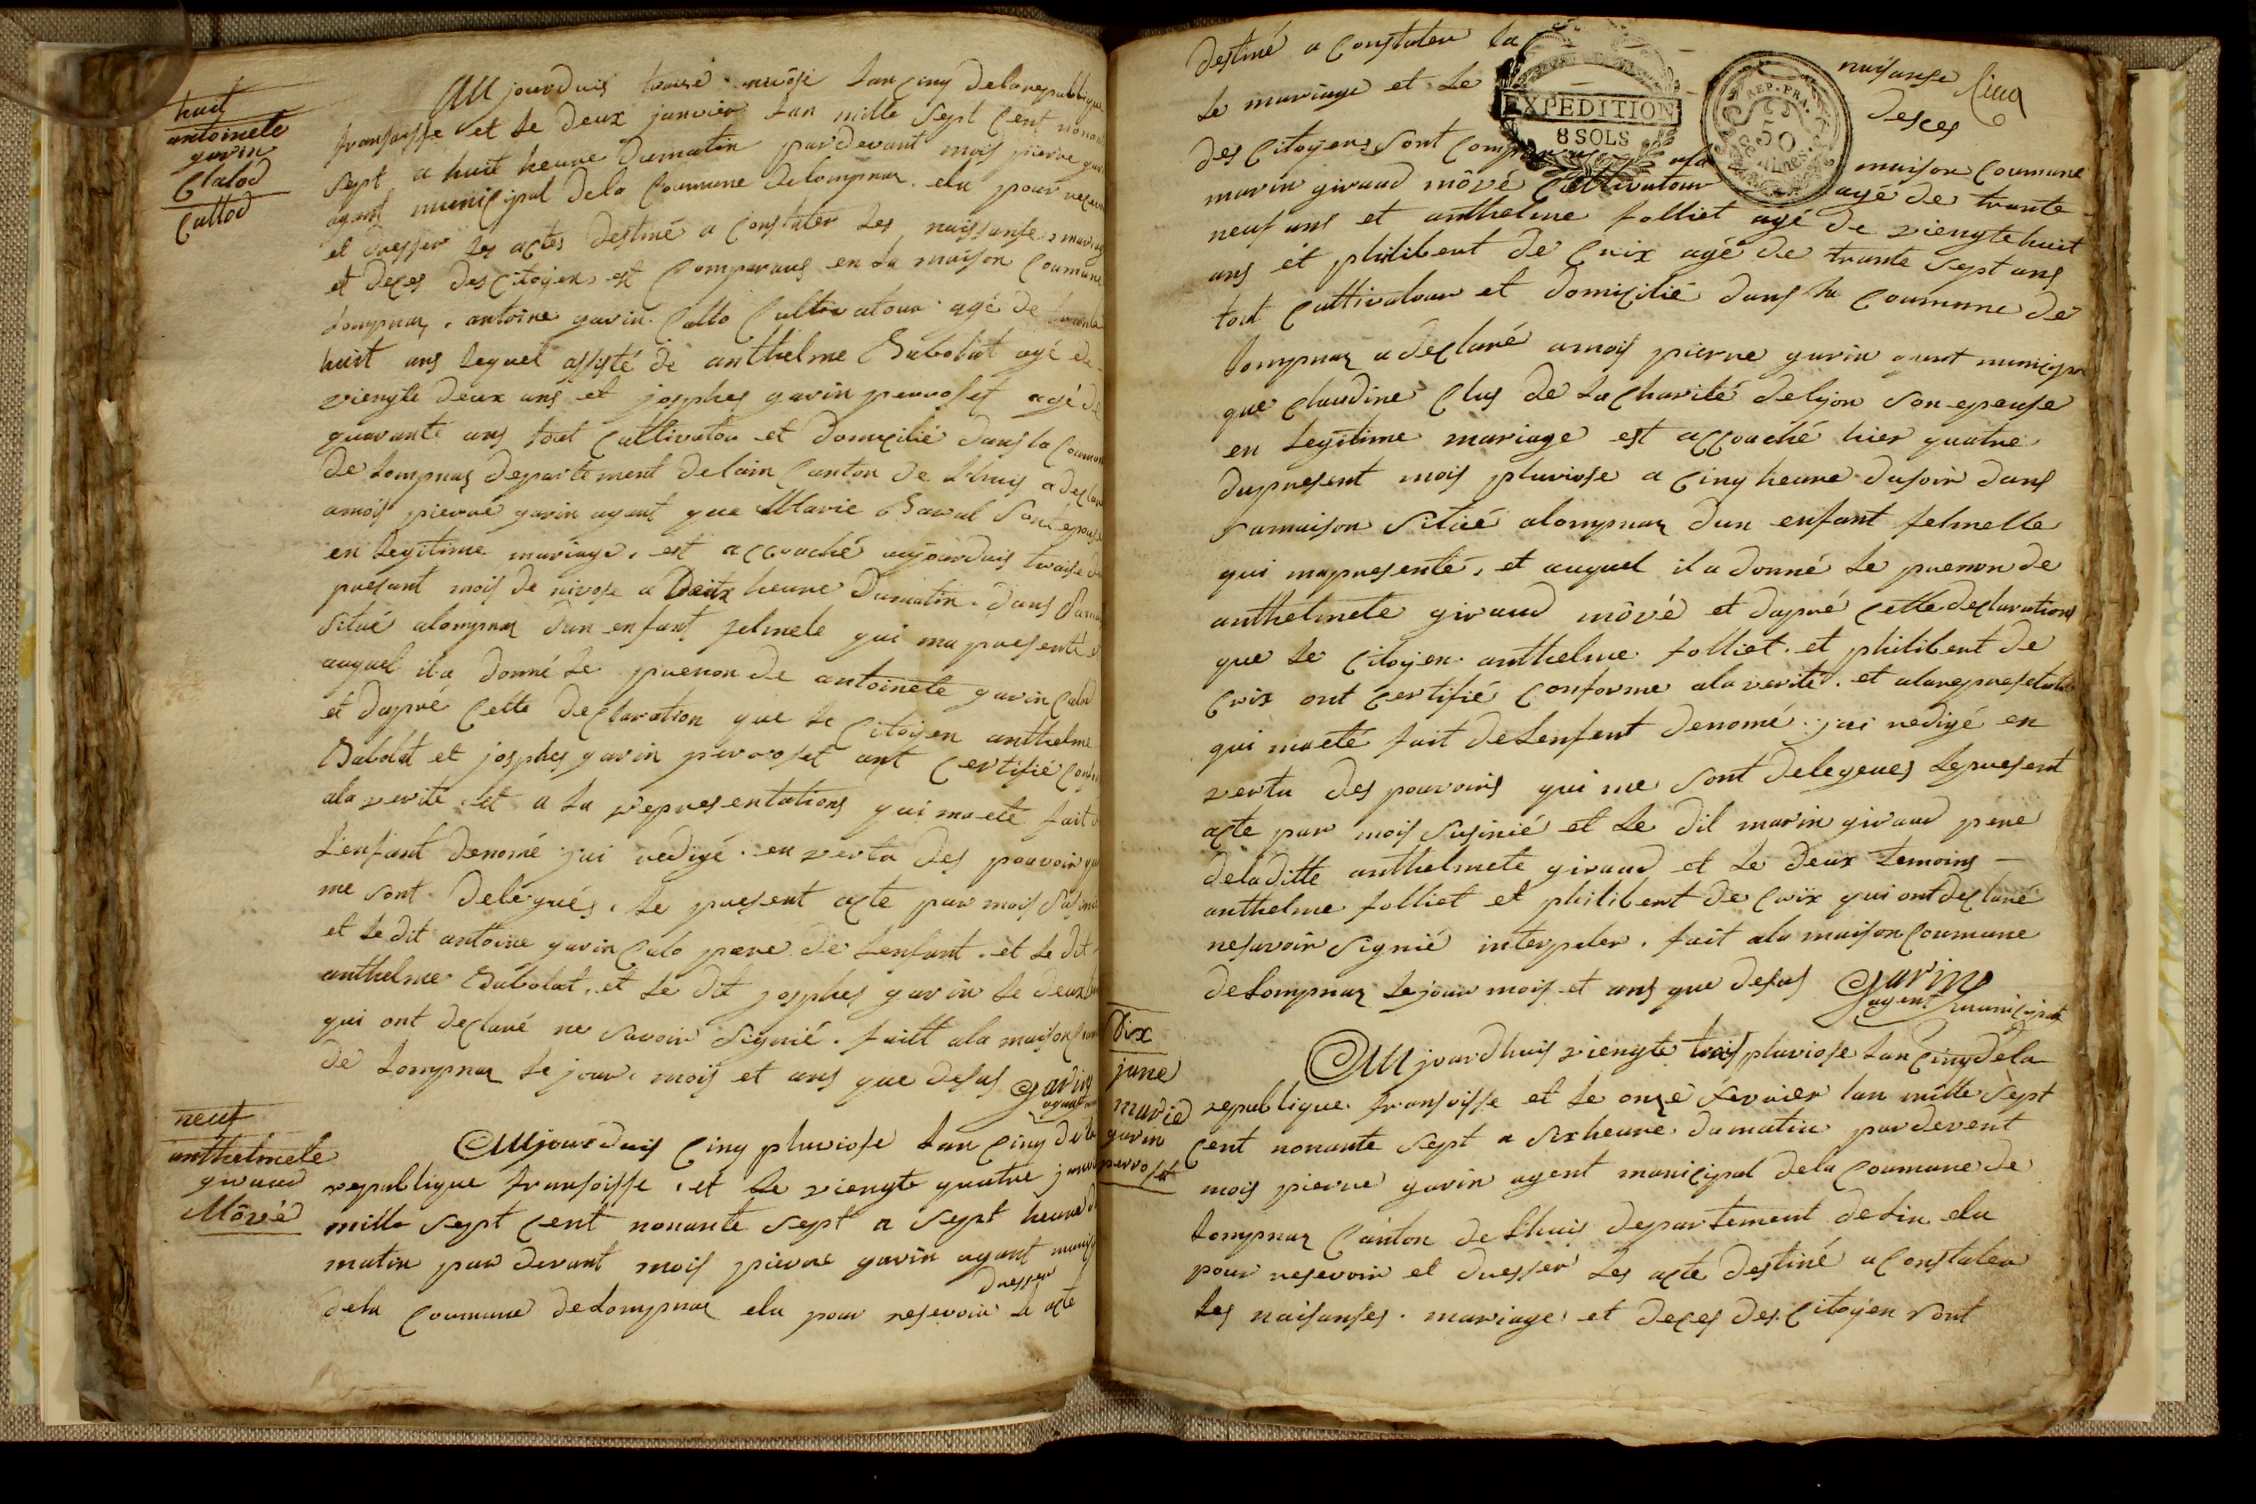 huit
antoinete
gavin
Calod
Callod
AUjourduis traise nivôse lan Cinq delarepublique
fransoisse et le deux janvier lan mille Sept Cent nonante
Sept a huit heure dumatin pardevant mois pierre gavin
agent municipal dela Coumune delompnaz elu pour resevoir
et dresser les actes destiné a Constater les naissanse mariage
et deces des Citoyens est Comparaus en la maison Coumune
lompnaz, antoine gavin Callo Cultivatour agé de
huit ans lequel assisté de anthelme Babolat agé de
viengte deux ans et josphes gavin perroset agé de
quarante ans tout Cultivatou et domicilié dans la Coumune
de lompnaz departement delain Canton de lhuis a declaré
amois pierre gavin agant que Marie Baral Sont epouse
en legitime mariage, est accouché aujourduis traise du
present mois de nivose a Deux heure Dumatin. dans Samaison
Situé alompnaz dun enfant felmele qui ma presenté et
auquel il a donné le prenon de antoinete gavin Calod
et dapré Cette declaration que le Citoyen anthelme
Babolat et josphes gavin perroset ont Certifié Conforme
ala verité et a la representations qui ma eté fait de
Lenfant denomé jai redigé en vertu des pouvoir qui
me sont delegués, le present acte par mois Susinié
et ledit antoine gavin Calo pere de lenfant. et le dit
anthelme Babolat, et le dit josphes gavin le deux
qui ont declaré ne Savoir Signié. faitt ala maison Coumune
de Lompnaz le jour, mois et ans que desus Gavin
agent
neuf
anthelmete
giraud
Môvé
AUjourduis Cinq pluviose lan Cinq dela
republique fransoisse, et le viengte quatre janvier
mille Sept Cent nonante Sept a Sept heure du
matin par devant mois pierre gavin agant
dresser
dela Coumune deLompnaz elu pour resevoir le acte
destiné a Constater la naisanse
le mariage et le Desces
EXPEDITION
8 SOLS
REP. FRA.
50
des Citoyens Sont Comparus ala maison Coumune
marin giraud môvé Cultivatour agé de trante
neuf ans et anthelme folliet agé de viengtehuit
ans et philibert de Crix agé de trante Sept ans
tout Cultivatour et domicilié dans la Coumune de
lompnaz a declaré amois pierre gavin agent municipal
que Claudine Clus de la Charité delyon Son epeuse
en legitime mariage est accouché hier quatre
dupresent mois pluviose a Cinq heure dusoir dans
samaison Situé alompnaz dun enfant felmelle
qui mapresenté, et auquel il a donné le prenon de
anthelmete giraud môvé et dapré Cette declaration
que le Citoyen anthelme folliet et philibert de
Crix ont Certifié Conforme ala verité. et alarepresetation
qui maeté fait deLenfent denomé jai redigé en
vertu des pouvoirs qui me Sont delegeues lepresent
acte par mois Susinié et le dit marin giraud pere
deladitte anthelmete giraud et le deux temoins
anthelme folliet et philibert de Crix qui ont declaré
nesavoir Signié interpeler. fait ala maison Coumune
deLompnaz lejour mois et ans que desus Gavin
agent municipal
dix
jane
marie
gavin
perroset
AUjourdhuis viengte trois pluviose lan Cinq dela
republique fransoisse et le onze fevrier lan mille Sept
Cent nonante Sept a Six heure dumatin pardevent
mois pierre gavin agent municipal dela Coumune de
Lompnaz Canton de lhuis departement delin elu
pour resevoir et dresser les acte destiné a Constater
les naisanses. mariage et deces des Citoyen Sont